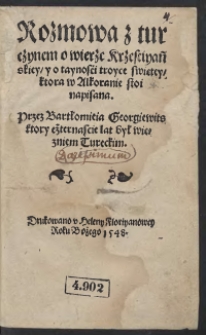 Rozmowa z tur
czynem o wierze Krzesciyań
skiey/ y o taynosći troyce swietey/
ktora w Alkoranie stoi
napisana.
Przez Bartłomieia Georgiewits
ktory czternascie lat był wiez
niem Tureckim.
Drukowano v Heleny Floryanowey
Roku Bożego 1548.
4.902